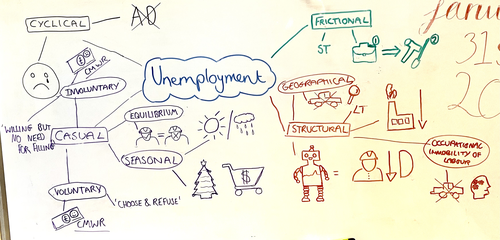 CYCLICAL
AD
FRICTIONAL
ST
Janu
31
20
CMWR
Unemployment
INVOLUNTARY
GEOGRAPHICAL
LT
EQUILIBRIUM
=
'WILLING BUT
NO NEED
FOR FILLING'
CASUAL
STRUCTURAL
SEASONAL
OCCUPATIONAL
IMMOBILITY OF
LABOUR
$
= D
VOLUNTARY
'CHOOSE & REFUSE'
CMWR